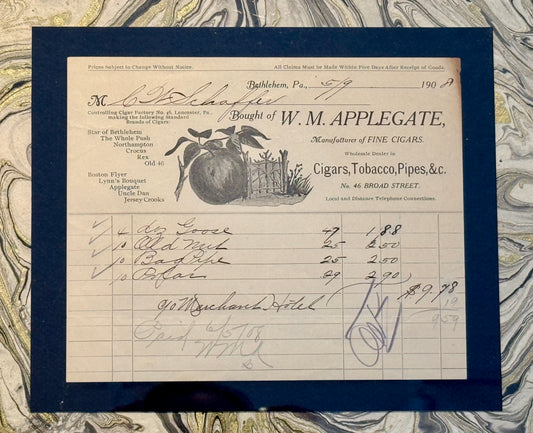 Prices Subject to Change Without Notice.
All Claims Must be Made Within Five Days After Receipt of Goods.
Bethlehem, Pa., 5/9 1908
M C. W. Schaffer
Bought of W. M. APPLEGATE,
Controlling Cigar Factory No. 46, Lancaster, Pa.,
making the following Standard
Brands of Cigars:
Manufacturer of FINE CIGARS.
Star of Bethlehem
The Whole Push
Northampton
Crocus
Rex
Old 46
Boston Flyer
Lynn's Bouquet
Applegate
Uncle Dan
Jersey Crooks
Wholesale Dealer in
Cigars, Tobacco, Pipes, &c.
No. 46 BROAD STREET.
Local and Distance Telephone Connections.
4 doz Goose 47 1 88
10 Old Nut 25 2.50
10 Bag Pipe 25 2.50
10 Polar 29 2.90
$9.78
c/o Merchants Hotel 19
9 59
Paid 6/5/08
WMA